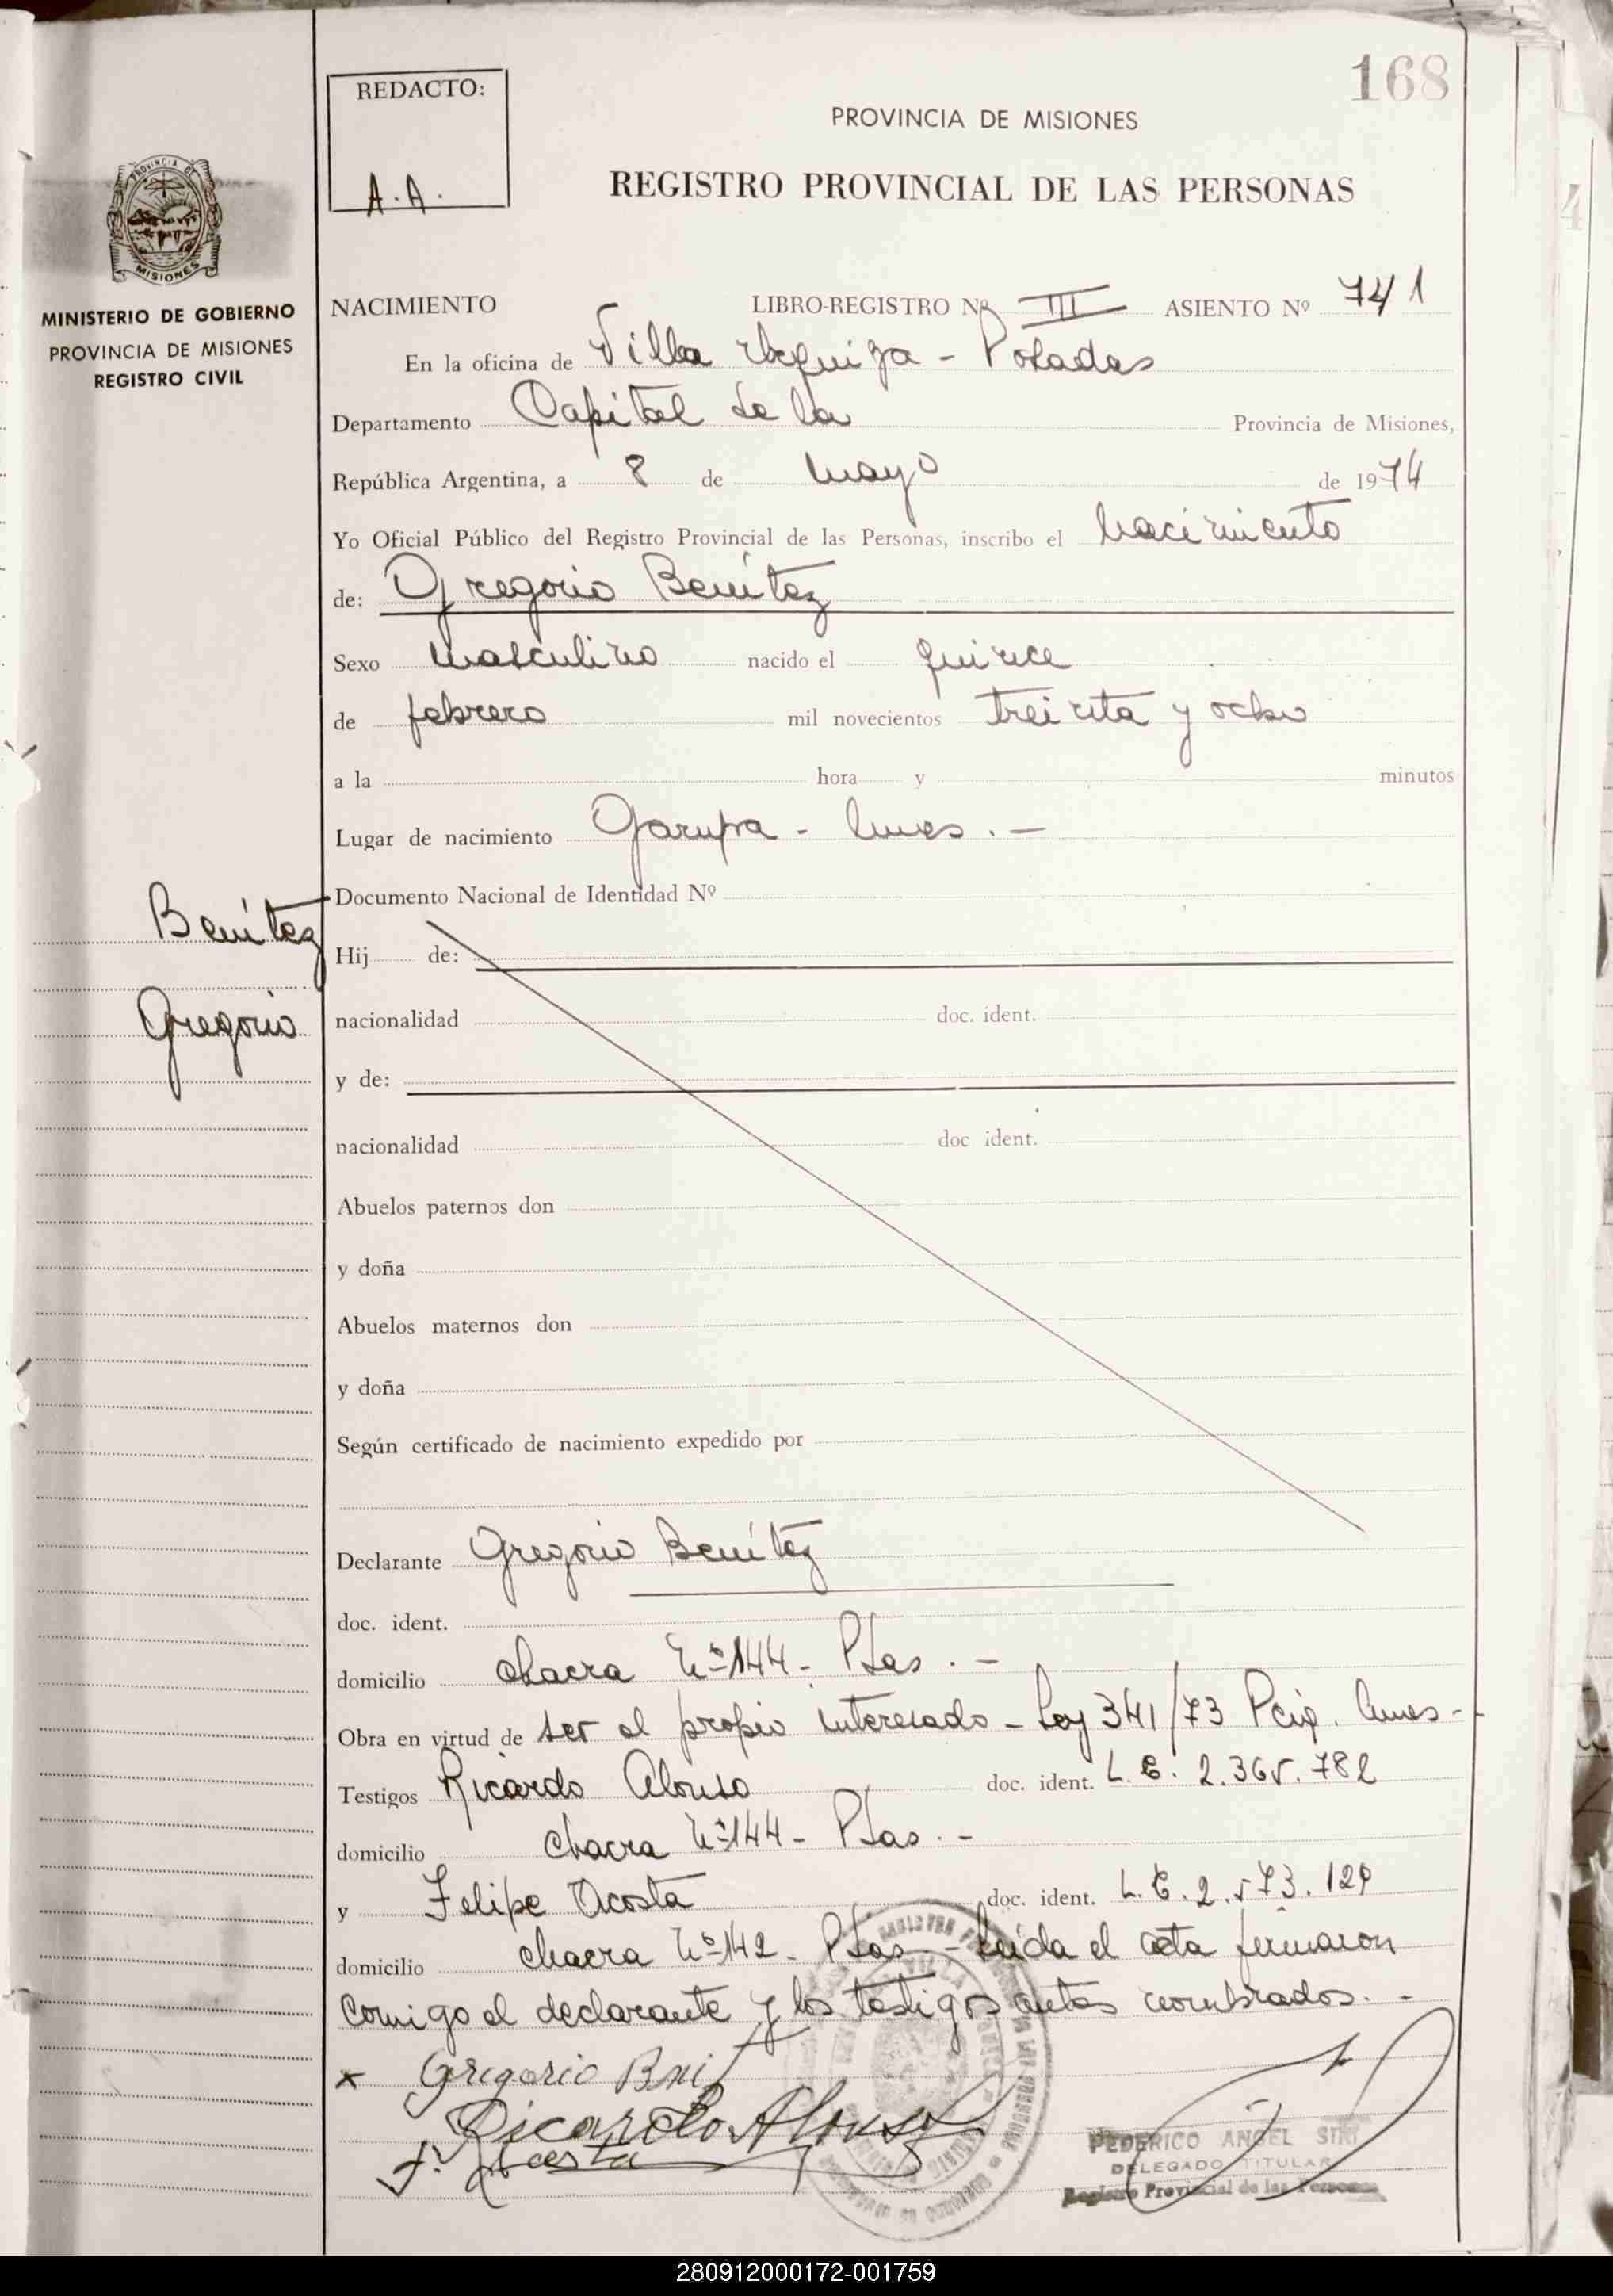 168
REDACTO:
A.A.
PROVINCIA DE MISIONES
REGISTRO PROVINCIAL DE LAS PERSONAS
PROVINCIA DE
MISIONES
MINISTERIO DE GOBIERNO
PROVINCIA DE MISIONES
REGISTRO CIVIL
NACIMIENTO LIBRO-REGISTRO Nº III ASIENTO Nº 741
En la oficina de Villa Urquiza - Posadas
Departamento Capital de la Provincia de Misiones,
República Argentina, a 8 de mayo de 1974
Yo Oficial Público del Registro Provincial de las Personas, inscribo el Nacimiento
de: Gregorio Benítez
Sexo masculino nacido el quince
de febrero mil novecientos treinta y ocho
a la hora y minutos
Lugar de nacimiento Garupa - Mnes. -
Documento Nacional de Identidad Nº
Benítez
Gregorio
Hij de:
nacionalidad doc. ident.
y de:
nacionalidad doc ident.
Abuelos paternos don
y doña
Abuelos maternos don
y doña
Según certificado de nacimiento expedido por
Declarante Gregorio Benítez
doc. ident.
domicilio chacra Nº 144 - Pdas. -
Obra en virtud de ser el propio interesado - Ley 341/73 Pcia. Mnes -
Testigos Ricardo Alonso doc. ident. L.E. 2.365.782
domicilio chacra Nº 144 - Pdas. -
y Felipe Acosta doc. ident. L.E. 2.573.129
domicilio chacra Nº 142 - Pdas. - Leída el acta firmaron
comigo el declarante y los testigos antes nombrados. -
x Gregorio Bni
Ricardo Alonso
F. Acosta
FEDERICO ANGEL SIRI
DELEGADO TITULAR
Registro Provincial de las Personas
280912000172-001759